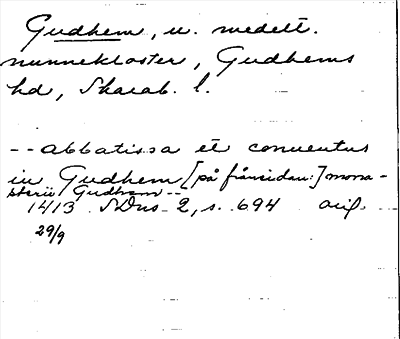 Gudhem, u. medelt.
nunnekloster, Gudhems
hd, Skarab. l.
-- abbatissa et conuentus
in Gudhem [på frånsidan:] mona-
sterii Gudhem --
1413 SDns 2, s. 694 orig.
29/9